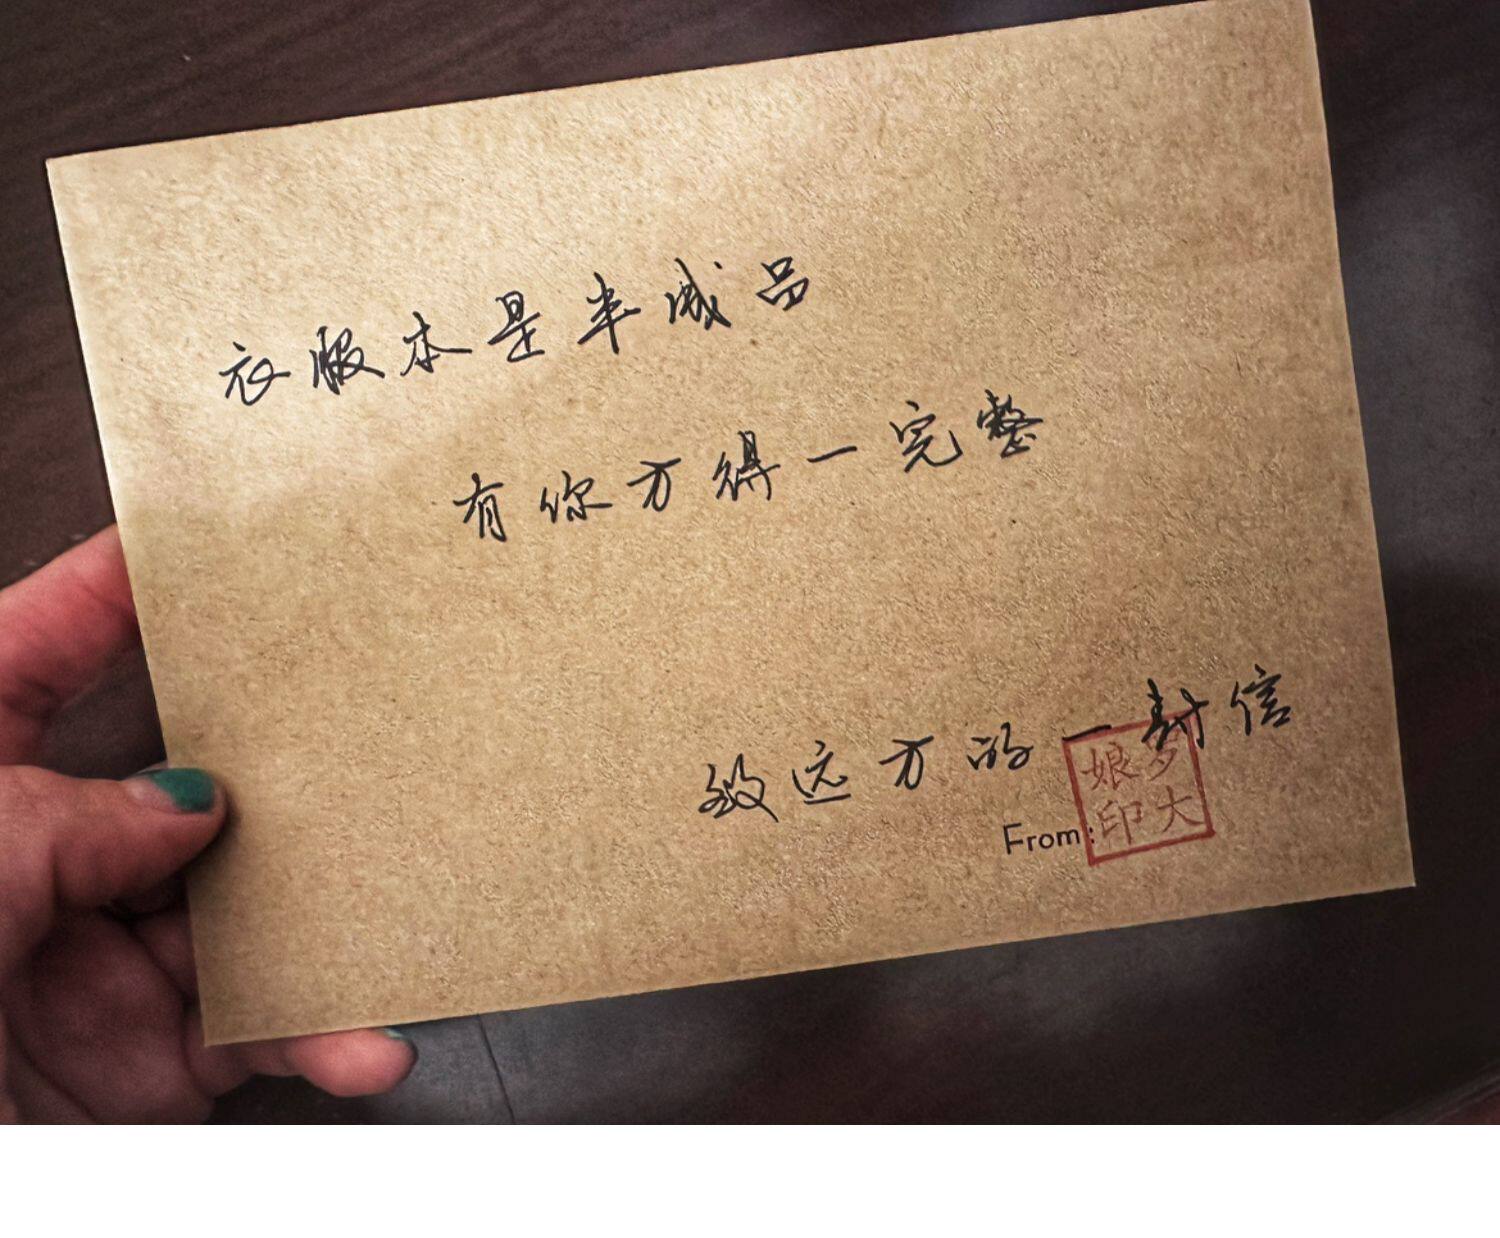 衣服本是半成品
有你方得一完整
致远方的一封信
From:
罗大
娘印